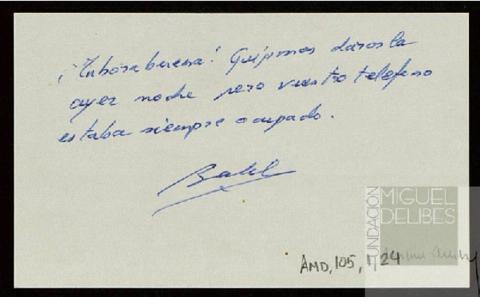 ¡Enhorabuena! Quisimos dárosla
ayer noche pero vuestro teléfono
estaba siempre ocupado.
FUNDACIÓN
MIGUEL
DELIBES
AMD, 105, 1, 24